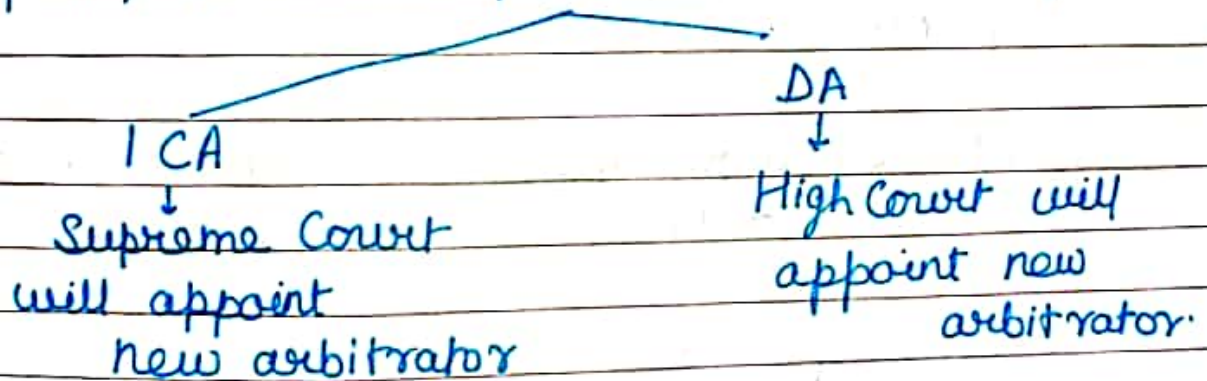 ICA
↓
Supreme Court
will appoint
new arbitrator
DA
↓
High Court will
appoint new
arbitrator.